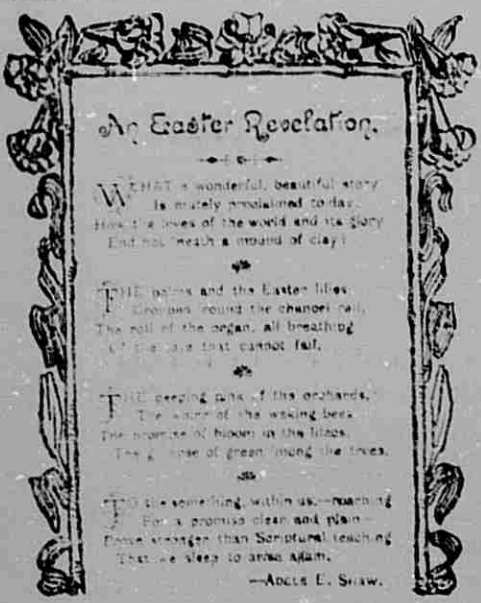 An Easter Revelation.
WHAT a wonderful, beautiful story
Is mutely proclaimed to-day.
How the loves of the world and its glory
End not 'neath a mound of clay!
THE palms and the Easter lilies
Grouped 'round the chancel rail,
The roll of the organ, all breathing
Of the love that cannot fail.
THE peeping pink of the orchards,
The of the waking bees
The promise of bloom in the lilacs,
The glimpse of green 'mong the trees,
TO the something, within us,—reaching
For a promise clear and plain—
Prove stronger than Scriptural teaching
That we sleep to arise again.
—ADELE E. SHAW.